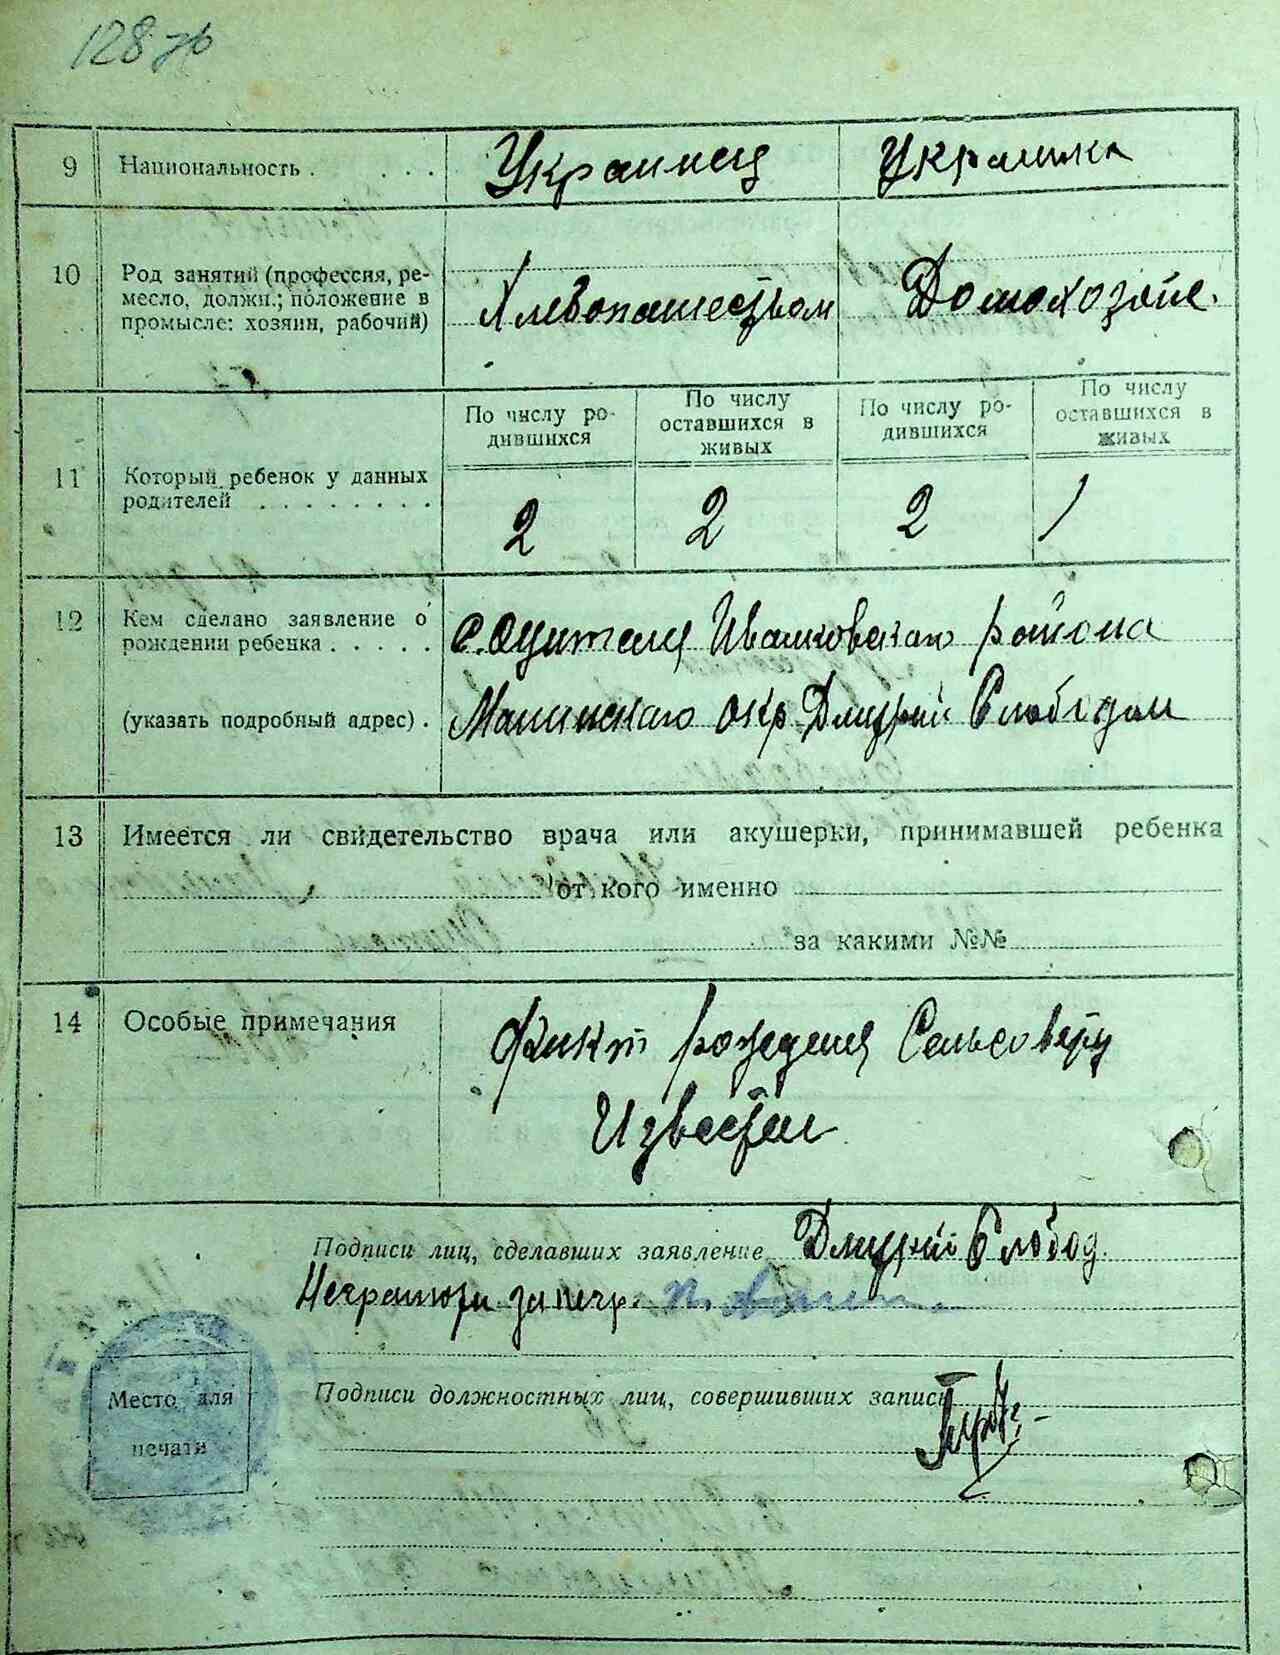 128 об
9 Национальность . . . . Украинец Украинка
10 Род занятий (профессия, ре-
месло, должн.; положение в
промысле: хозяин, рабочий)
Хлебопашеством Домохозяйк.
По числу ро-
дившихся
По числу
оставшихся в
живых
По числу ро-
дившихся
По числу
оставшихся в
живых
11 Который ребенок у данных
родителей . . . . . . . .
2 2 2 1
12 Кем сделано заявление о
рождении ребенка . . . . .
Иванковского района
(указать подробный адрес) .
окр Дмитрий Слободян
13 Имеется ли свидетельство врача или акушерки, принимавшей ребенка
от кого именно
за какими №№
14 Особые примечания
Факт рождения Сельсовету
Известен
Подписи лиц, сделавших заявление Дмитрий Слобод.
Место для
печати
Подписи должностных лиц, совершивших запись